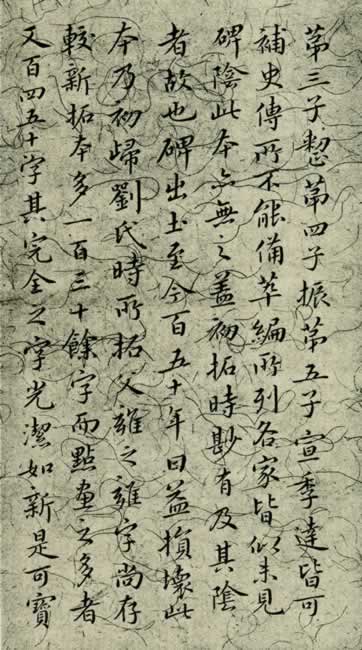 第三子整第四子振第五子宣季達皆可
補史傳所不能備萃編所列各家皆似未見
碑陰此本亦無之蓋初拓時尠有及其陰
者故也碑出土至今百五十年日益損壞此
本乃初歸劉氏時所拓父雄之雄字尚存
較新拓本多一百三十餘字而點畫之多者
又百四五十字其完全之字光潔如新是可寶